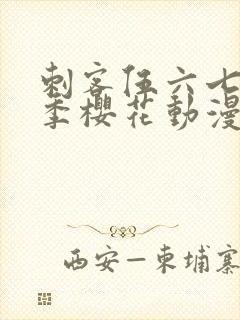 刺客伍六七
季樱花動漫
西安－柬埔寨